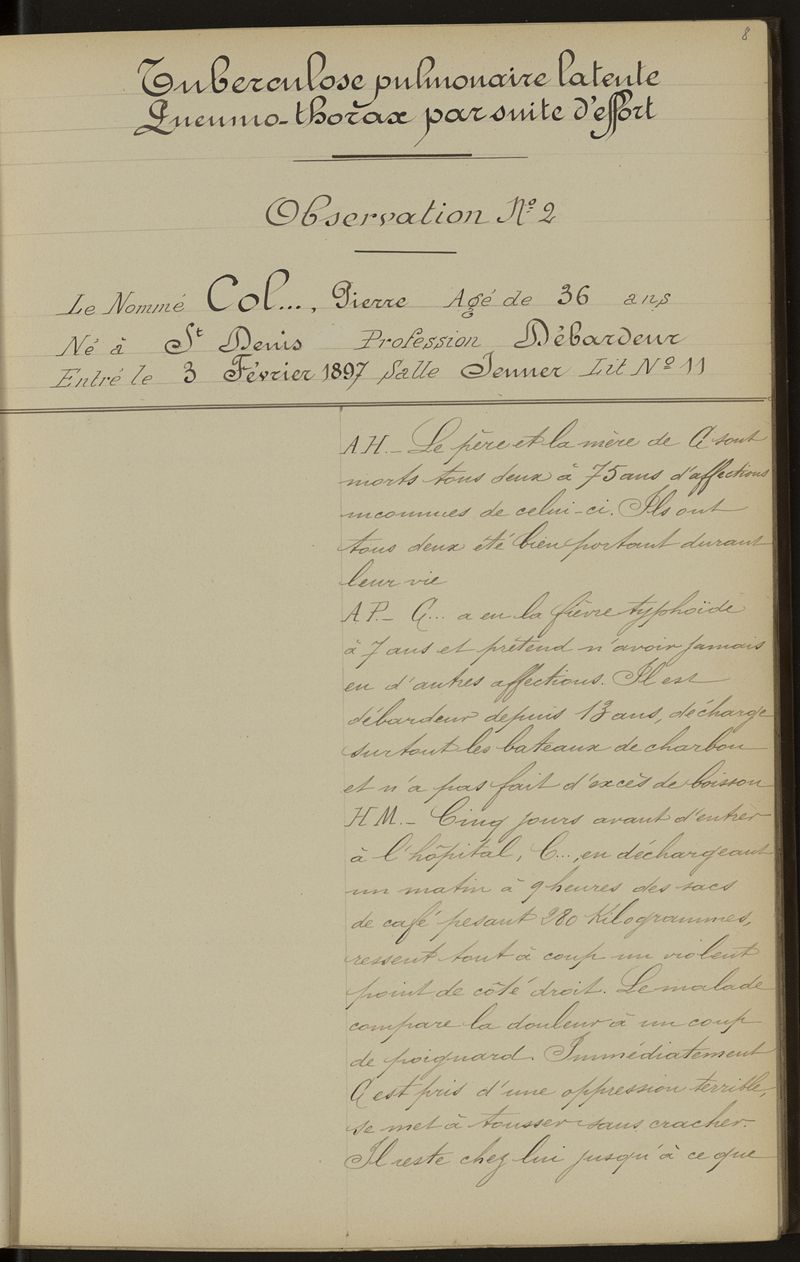 8
Tuberculose pulmonaire latente
Pneumo-thorax par suite d'effort
Observation No 2
Le Nommé Col..., Pierre Agé de 36 ans
Né à St Denis Profession Débardeur
Entré le 3 Février 1897 Salle Jenner Lit No 11
A H. _ Le père et la mère de C sont
morts tous deux à 75 ans d'affections
inconnues de celui-ci. Ils ont
tous deux été bien portant durant
leur vie
A P. _ C... a eu la fièvre typhoïde
à 7 ans et prétend n'avoir jamais
eu d'autres affections. Il est
débardeur depuis 13 ans, décharge
surtout les bateaux de charbon
et n'a pas fait d'excès de boisson
H M. _ Cinq jours avant d'entrer
à l'hôpital, C..., en déchargeant
un matin à 9 heures des sacs
de café pesant 280 Kilogrammes,
ressent tout à coup un violent
point de côté droit. Le malade
compare la douleur à un coup
de poignard. Immédiatement
C est pris d'une oppression terrible,
se met à tousser sans cracher.
Il reste chez lui jusqu'à ce que